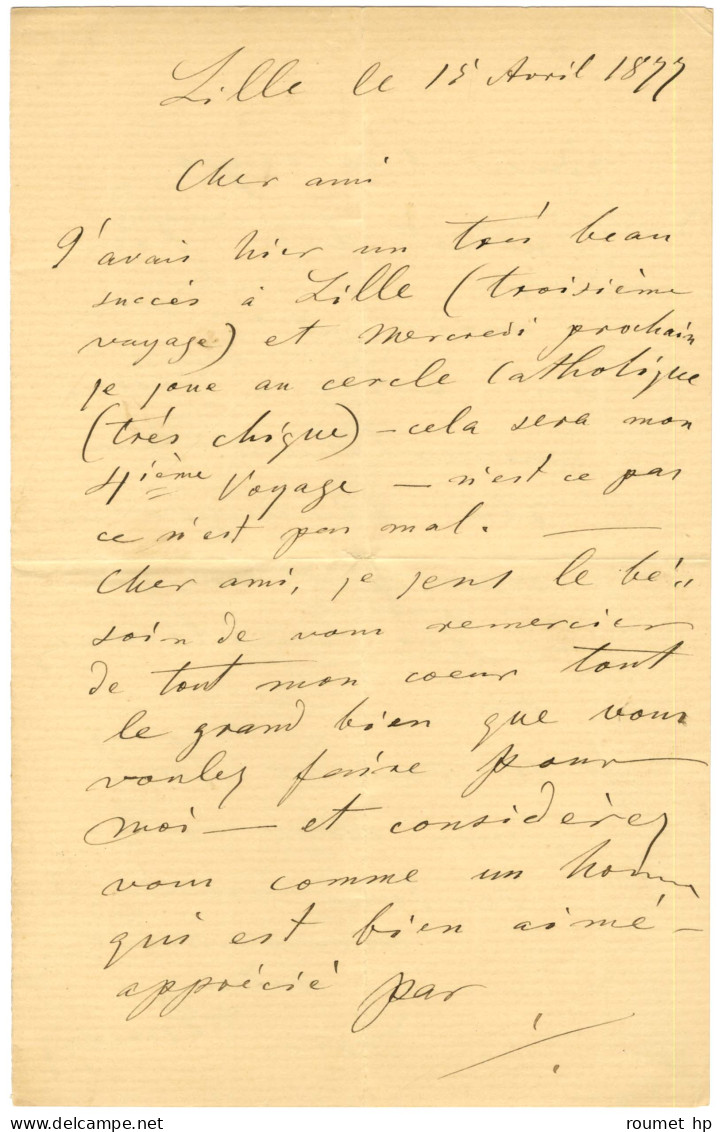 Lille le 15 Avril 1877
Cher ami
J'avais hier un très beau
succès à Lille (troisième
voyage) et Mercredi prochain
je joue au cercle Catholique
(très chique) – cela sera mon
4ième Voyage – n'est ce pas
ce n'est pas mal. —
Cher ami, je sens le bé-
soin de vous remercier
de tout mon coeur tout
le grand bien que vous
voulez faire pour
moi — et considèrez
vous comme un homme
qui est bien aimé –
apprécié par
roumet hp